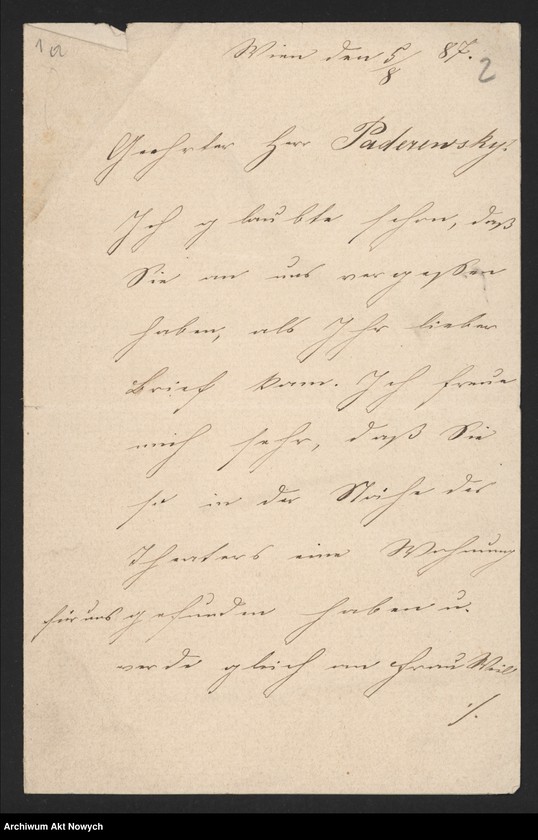 1
2
Wien den 5/8 87.
Geehrter Herr Paderewsky!
Ich glaubte schon, daß
Sie an uns vergessen
haben, als Ihr lieber
Brief kam. Ich freue
mich sehr, daß Sie
so in der Nähe des
Theaters eine Wohnung
für uns gefunden haben u.
werde gleich an Frau Weil
./.
Archiwum Akt Nowych